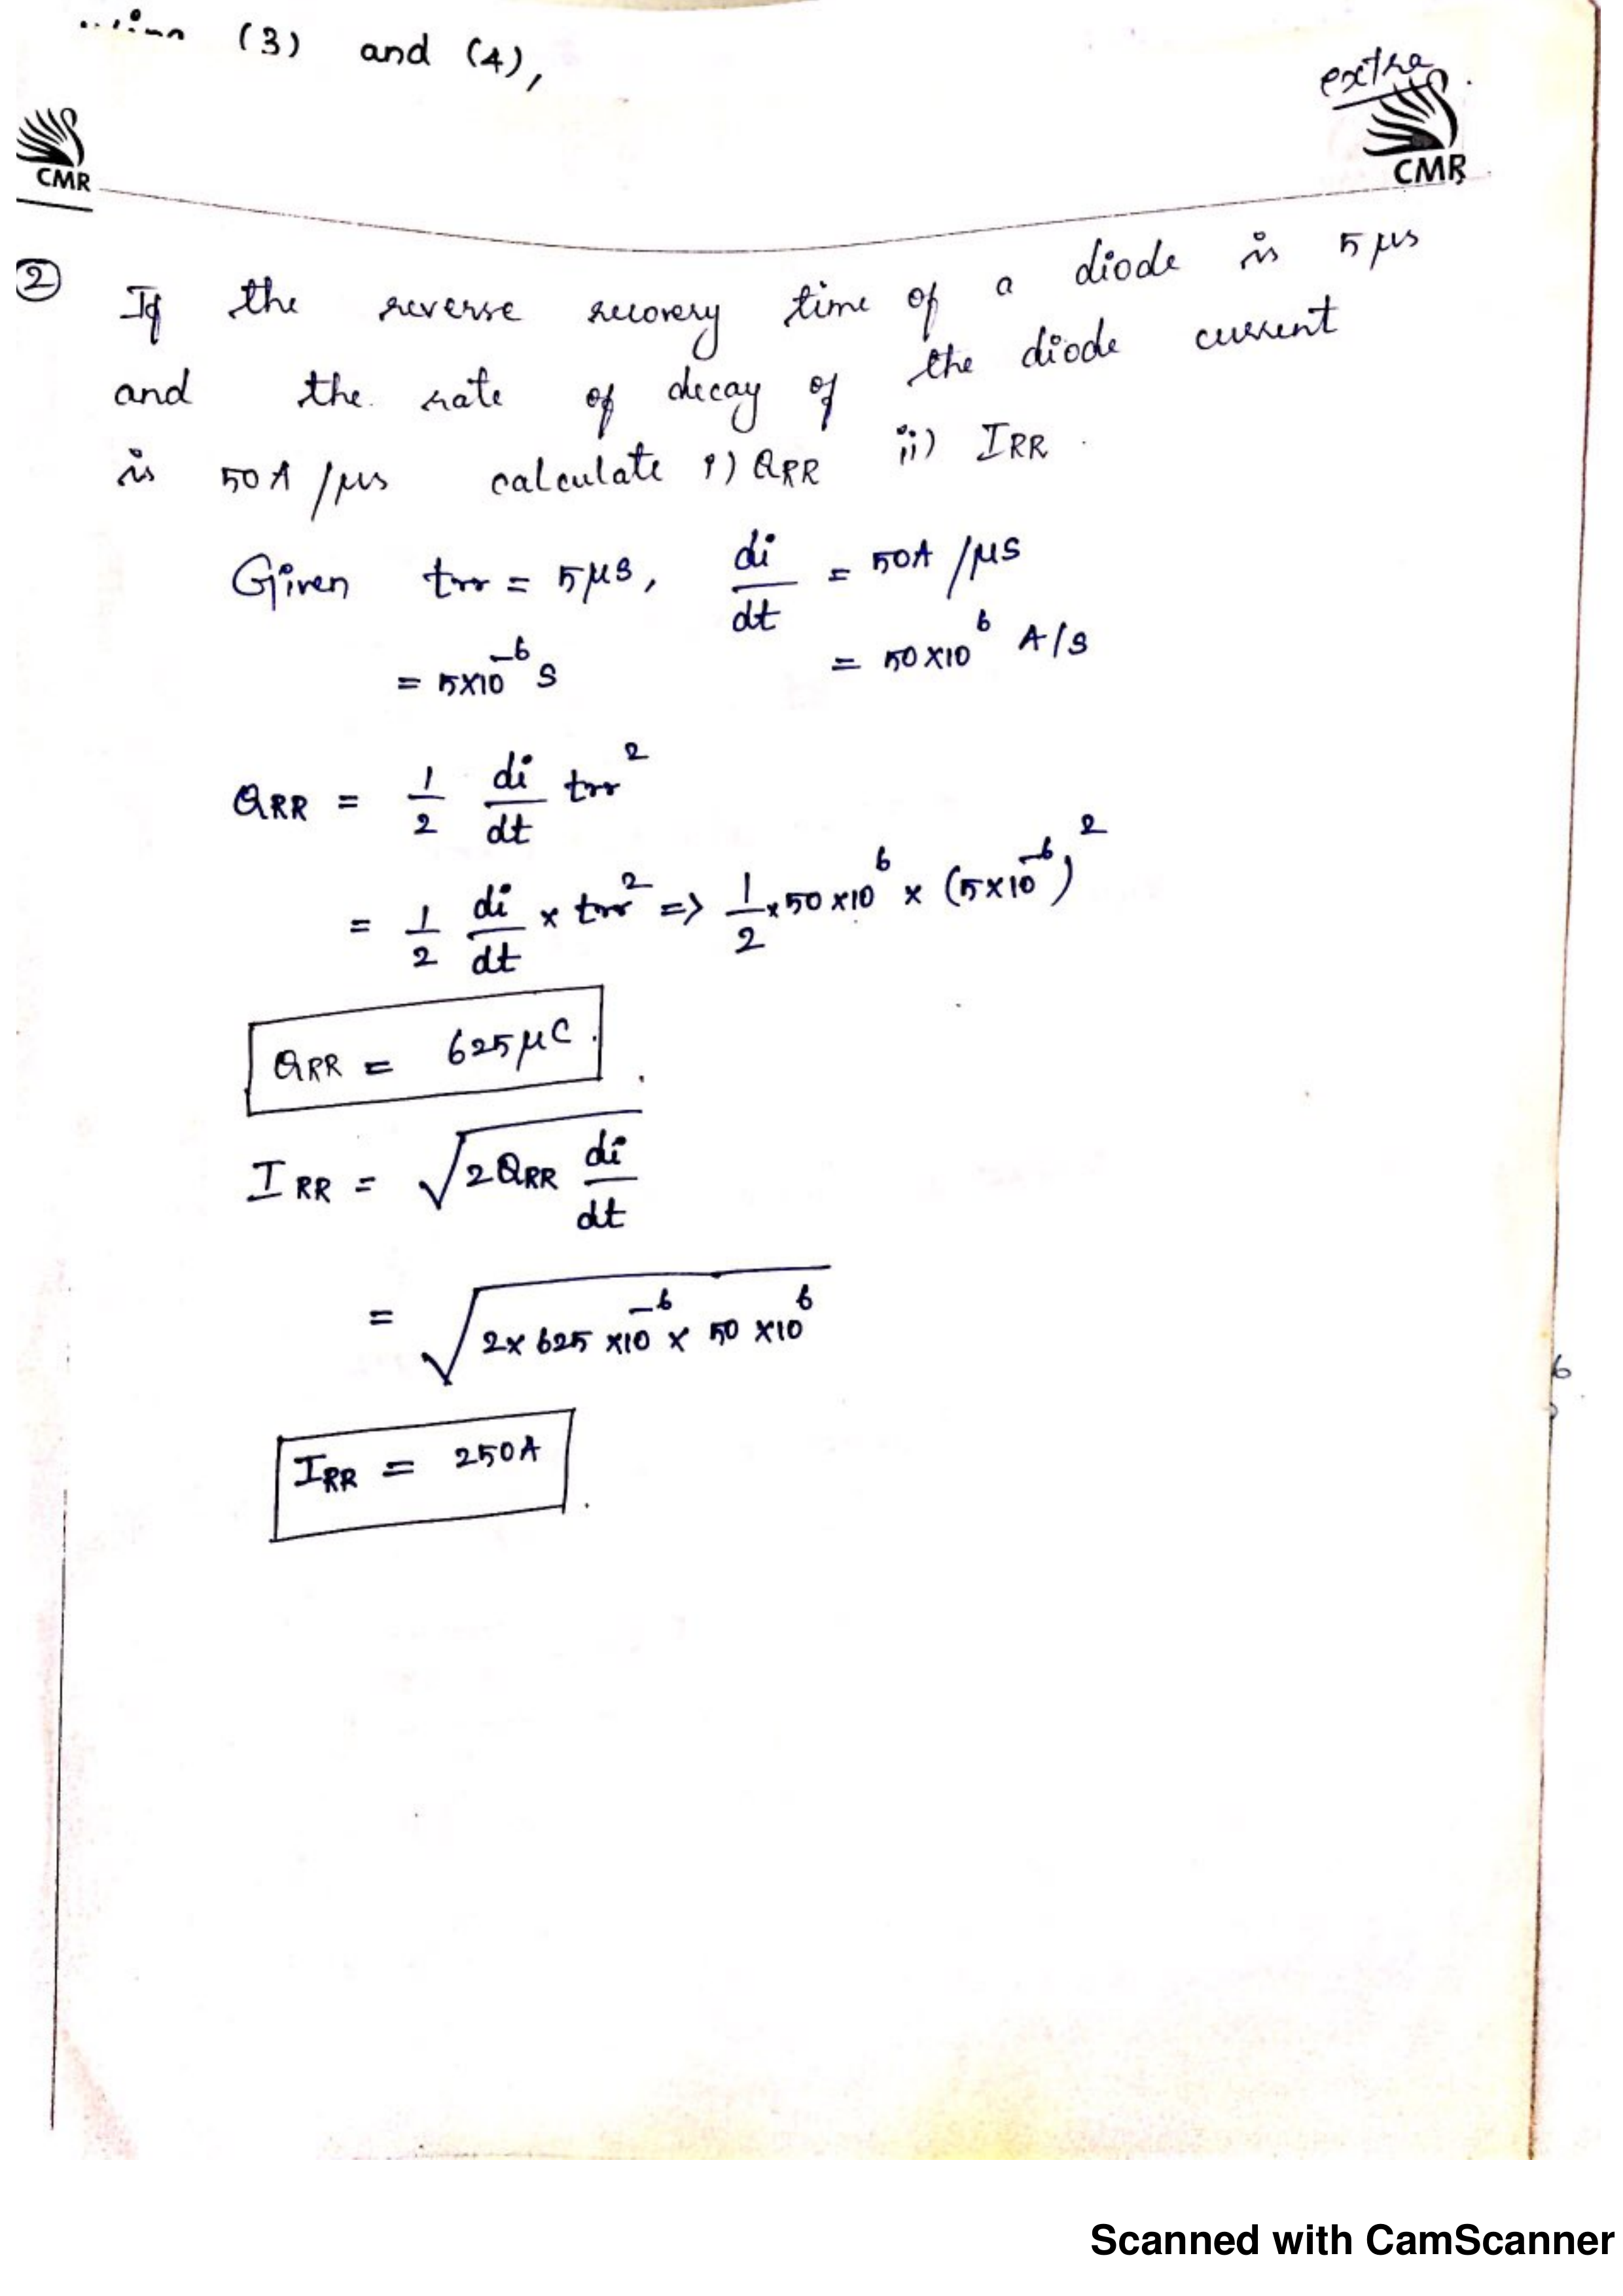 (3) and (4),
extra
CMR
CMR
② If the reverse recovery time of a diode is 5 μs
and the rate of decay of the diode current
is 50A/μs calculate i) QRR ii) IRR.
Given trr = 5μs, di/dt = 50A/μs
= 5×10⁻⁶ S = 50×10⁶ A/S
QRR = 1/2 di/dt trr²
= 1/2 di/dt × trr² => 1/2 × 50×10⁶ × (5×10⁻⁶)²
QRR = 625μC.
IRR = √(2QRR di/dt)
= √(2×625×10⁻⁶ × 50×10⁶)
6
IRR = 250A.
Scanned with CamScanner